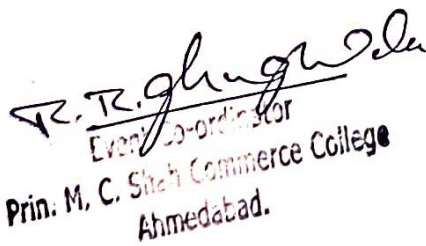 R. R.
Event Co-ordinator
Prin. M. C. Shah Commerce College
Ahmedabad.